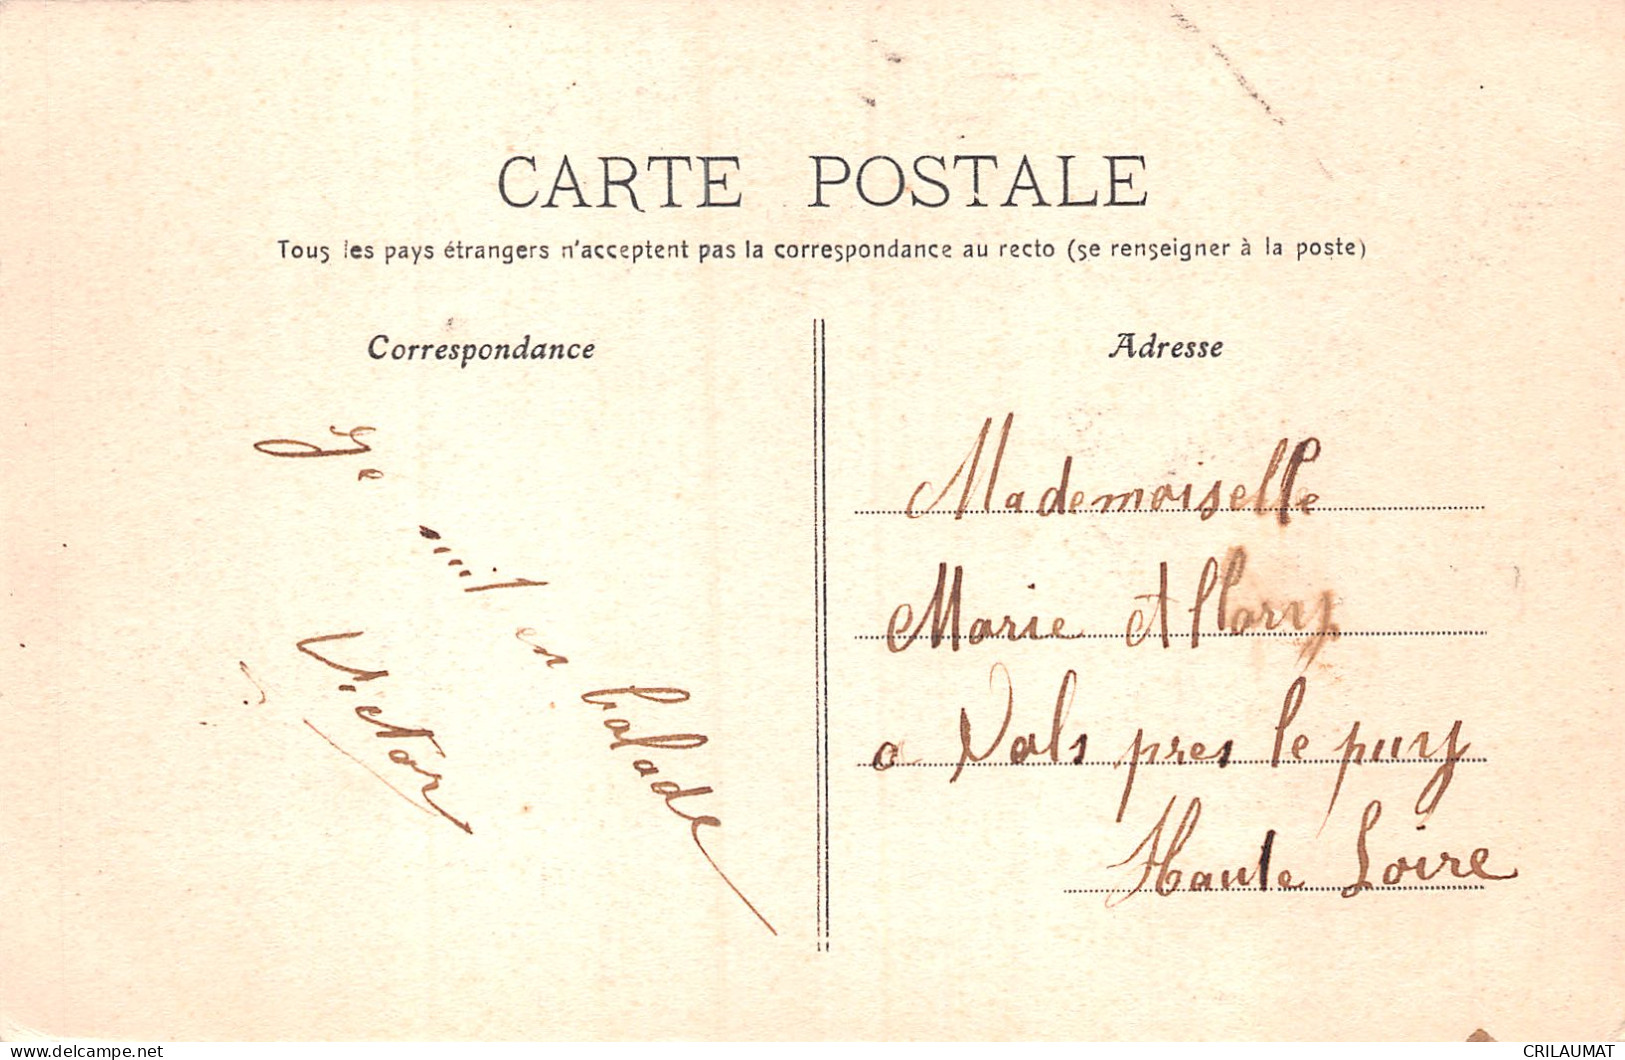 CARTE POSTALE
Tous les pays étrangers n'acceptent pas la correspondance au recto (se renseigner à la poste)
Correspondance
Je suis en balade
Victor
Adresse
Mademoiselle
Marie Allary
a Vals pres le puy
Haute Loire
https://www.delcampe.net
CRILAUMAT